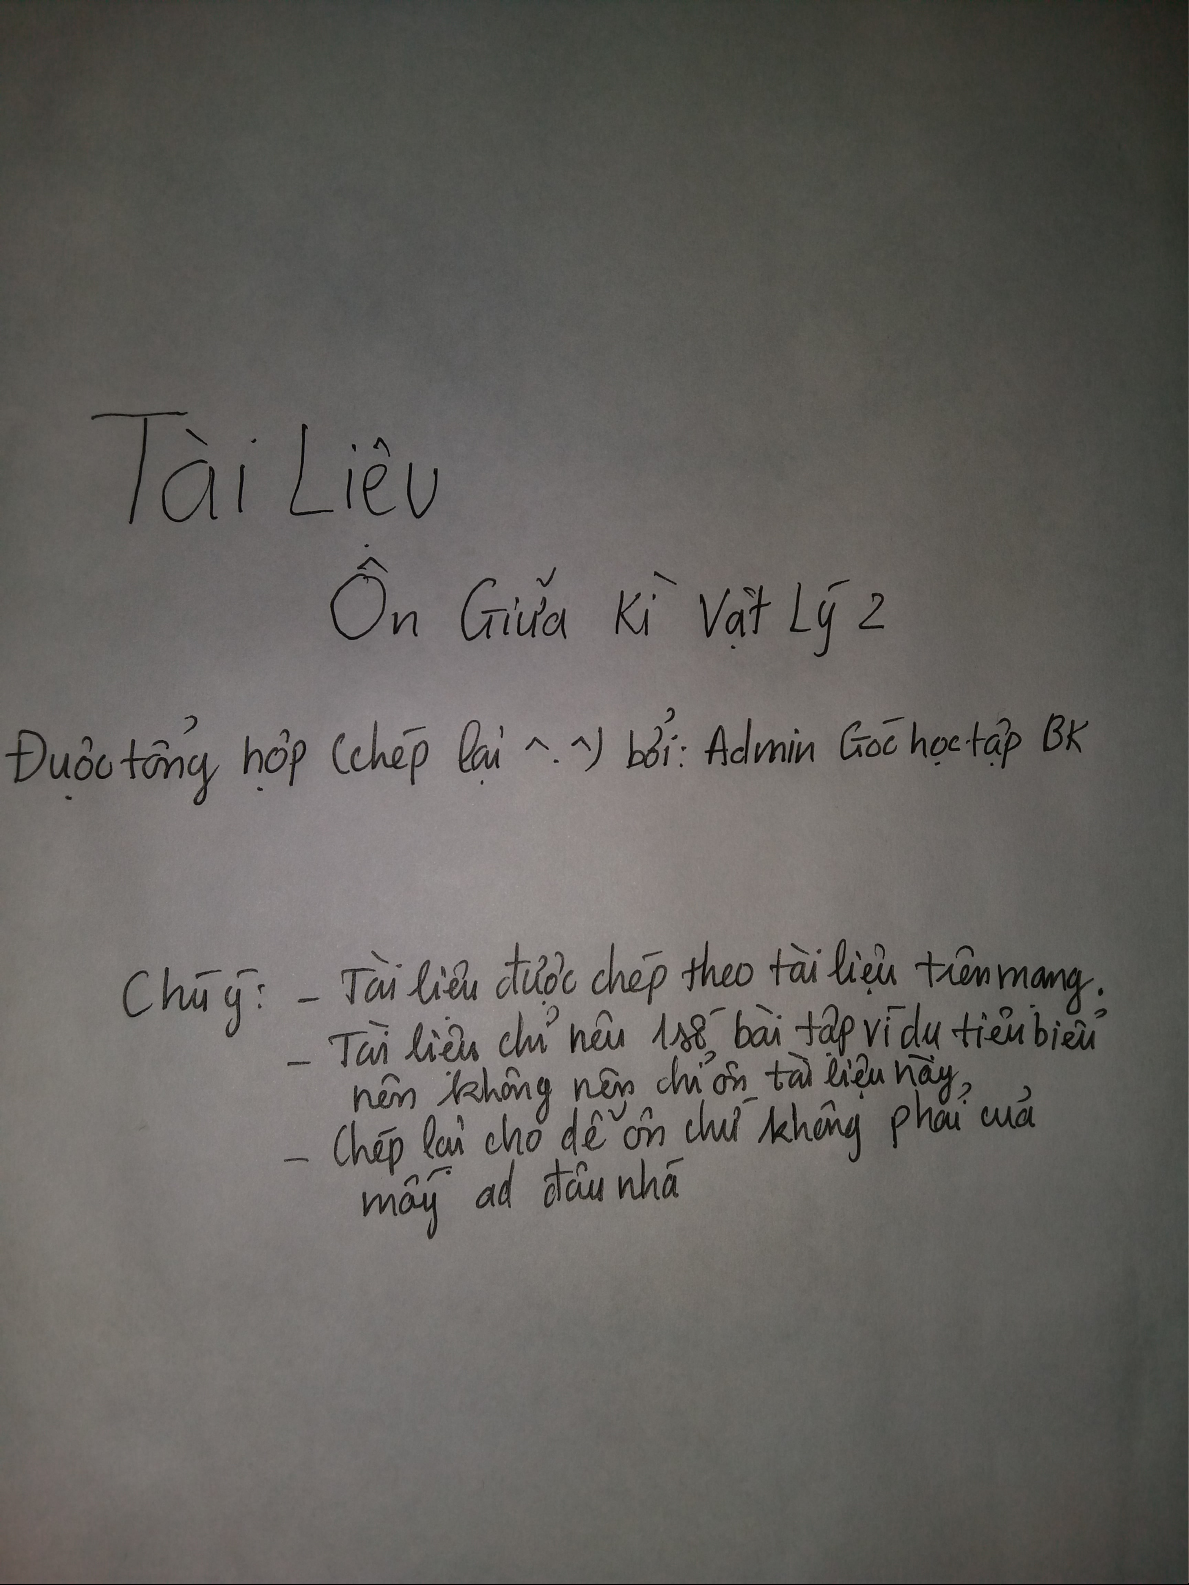 Tài Liệu
Ôn Giữa Kì Vật Lý 2
Được tổng hợp (chép lại ^.^) bởi: Admin Góc học tập BK
Chú ý: - Tài liệu được chép theo tài liệu trên mạng.
- Tài liệu chỉ nêu 1 số bài tập ví dụ tiêu biểu
nên không nên chỉ ôn tài liệu này,
- Chép lại cho dễ ôn chứ không phải của
mấy ad đâu nhá